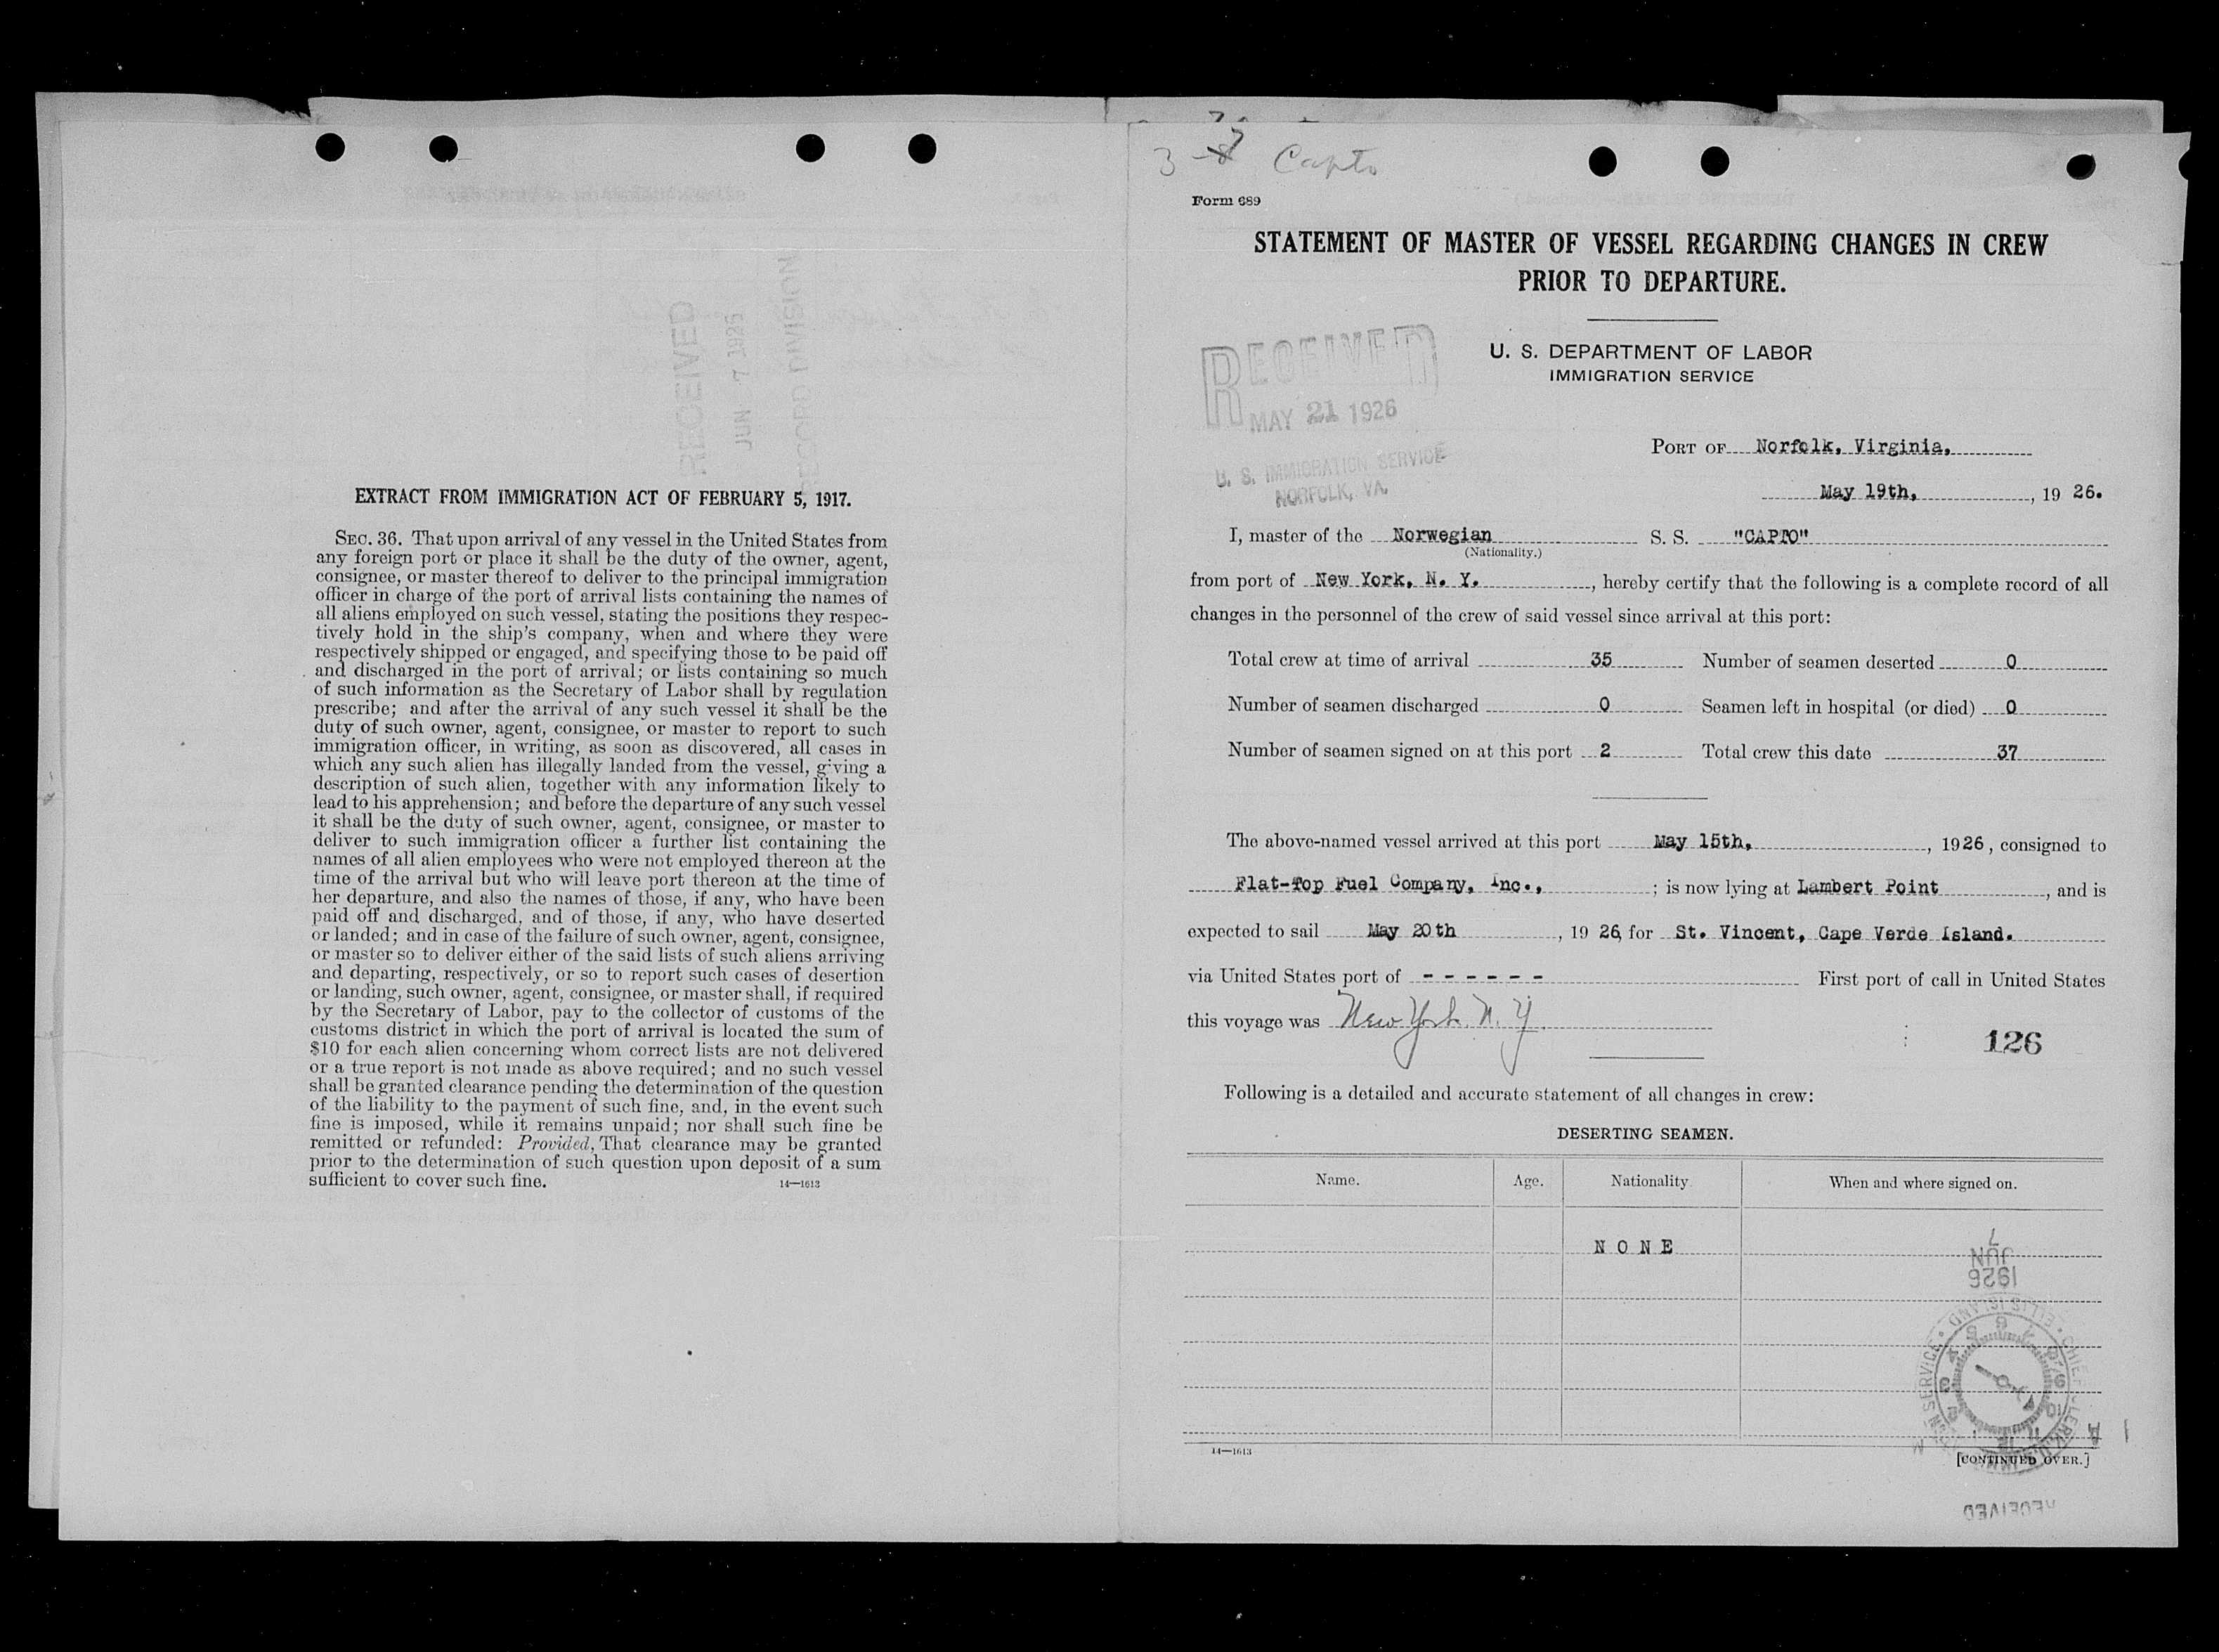 EXTRACT FROM IMMIGRATION ACT OF FEBRUARY 5, 1917.
SEC. 36. That upon arrival of any vessel in the United States from
any foreign port or place it shall be the duty of the owner, agent,
consignee, or master thereof to deliver to the principal immigration
officer in charge of the port of arrival lists containing the names of
all aliens employed on such vessel, stating the positions they respec-
tively hold in the ship's company, when and where they were
respectively shipped or engaged, and specifying those to be paid off
and discharged in the port of arrival; or lists containing so much
of such information as the Secretary of Labor shall by regulation
prescribe; and after the arrival of any such vessel it shall be the
duty of such owner, agent, consignee, or master to report to such
immigration officer, in writing, as soon as discovered, all cases in
which any such alien has illegally landed from the vessel, giving a
description of such alien, together with any information likely to
lead to his apprehension; and before the departure of any such vessel
it shall be the duty of such owner, agent, consignee, or master to
deliver to such immigration officer a further list containing the
names of all alien employees who were not employed thereon at the
time of the arrival but who will leave port thereon at the time of
her departure, and also the names of those, if any, who have been
paid off and discharged, and of those, if any, who have deserted
or landed; and in case of the failure of such owner, agent, consignee,
or master so to deliver either of the said lists of such aliens arriving
and departing, respectively, or so to report such cases of desertion
or landing, such owner, agent, consignee, or master shall, if required
by the Secretary of Labor, pay to the collector of customs of the
customs district in which the port of arrival is located the sum of
$10 for each alien concerning whom correct lists are not delivered
or a true report is not made as above required; and no such vessel
shall be granted clearance pending the determination of the question
of the liability to the payment of such fine, and, in the event such
fine is imposed, while it remains unpaid; nor shall such fine be
remitted or refunded: Provided, That clearance may be granted
prior to the determination of such question upon deposit of a sum
sufficient to cover such fine.
14—1613
3 - 7 Capto
Form 689
STATEMENT OF MASTER OF VESSEL REGARDING CHANGES IN CREW
PRIOR TO DEPARTURE.
U. S. DEPARTMENT OF LABOR
IMMIGRATION SERVICE
RECEIVED
MAY 21 1926
U. S. IMMIGRATION SERVICE
NORFOLK, VA.
PORT OF Norfolk, Virginia,
May 19th, , 19 26.
I, master of the Norwegian S. S. "CAPTO"
(Nationality.)
from port of New York, N. Y. , hereby certify that the following is a complete record of all
changes in the personnel of the crew of said vessel since arrival at this port:
Total crew at time of arrival 35 Number of seamen deserted 0
Number of seamen discharged 0 Seamen left in hospital (or died) 0
Number of seamen signed on at this port 2 Total crew this date 37
The above-named vessel arrived at this port May 15th, , 1926, consigned to
Flat-Top Fuel Company, Inc., ; is now lying at Lambert Point , and is
expected to sail May 20th , 19 26, for St. Vincent, Cape Verde Island.
via United States port of - - - - - - First port of call in United States
this voyage was New York. N. Y.
126
Following is a detailed and accurate statement of all changes in crew:
DESERTING SEAMEN.
Name. Age. Nationality When and where signed on.
NONE
7
JUN
1926
14—1613
[CONTINUED OVER.]
RECEIVED